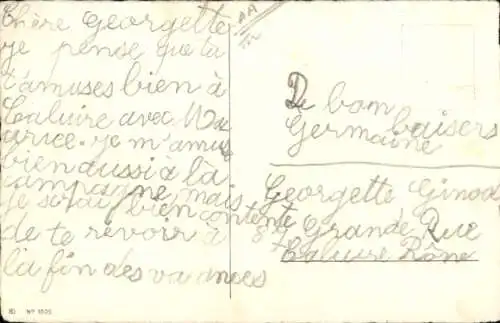 Chère Georgette
je pense que tu
t'amuses bien à
Caluire avec Ma
urice. je m'amuse
bien aussi à la
campagne mais
je serai bien contente
de te revoir à
la fin des vacances
De bon baisers
Germaine
Georgette Ginod
87 Grande Rue
Caluire Rône
Nº 1005